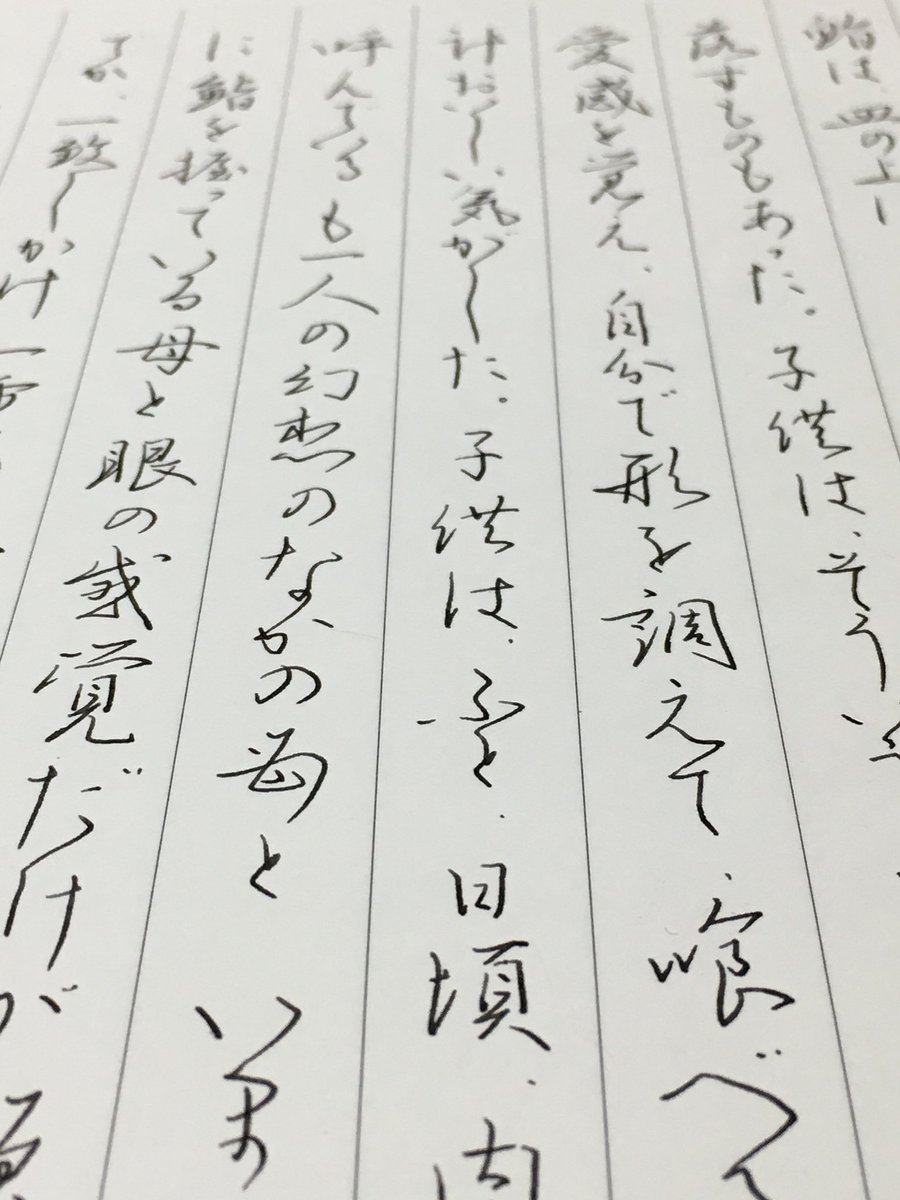 鮨は、皿の上
落すものもあった。子供は、そう
愛感を覚え、自分で形を調えて、喰べ
計おいしい気がした。子供は、ふと、日頃、内
呼んでるも一人の幻想のなかの母と いま
に鮨を握っている母と眼の感覚だけが
さか、一致しかけ一